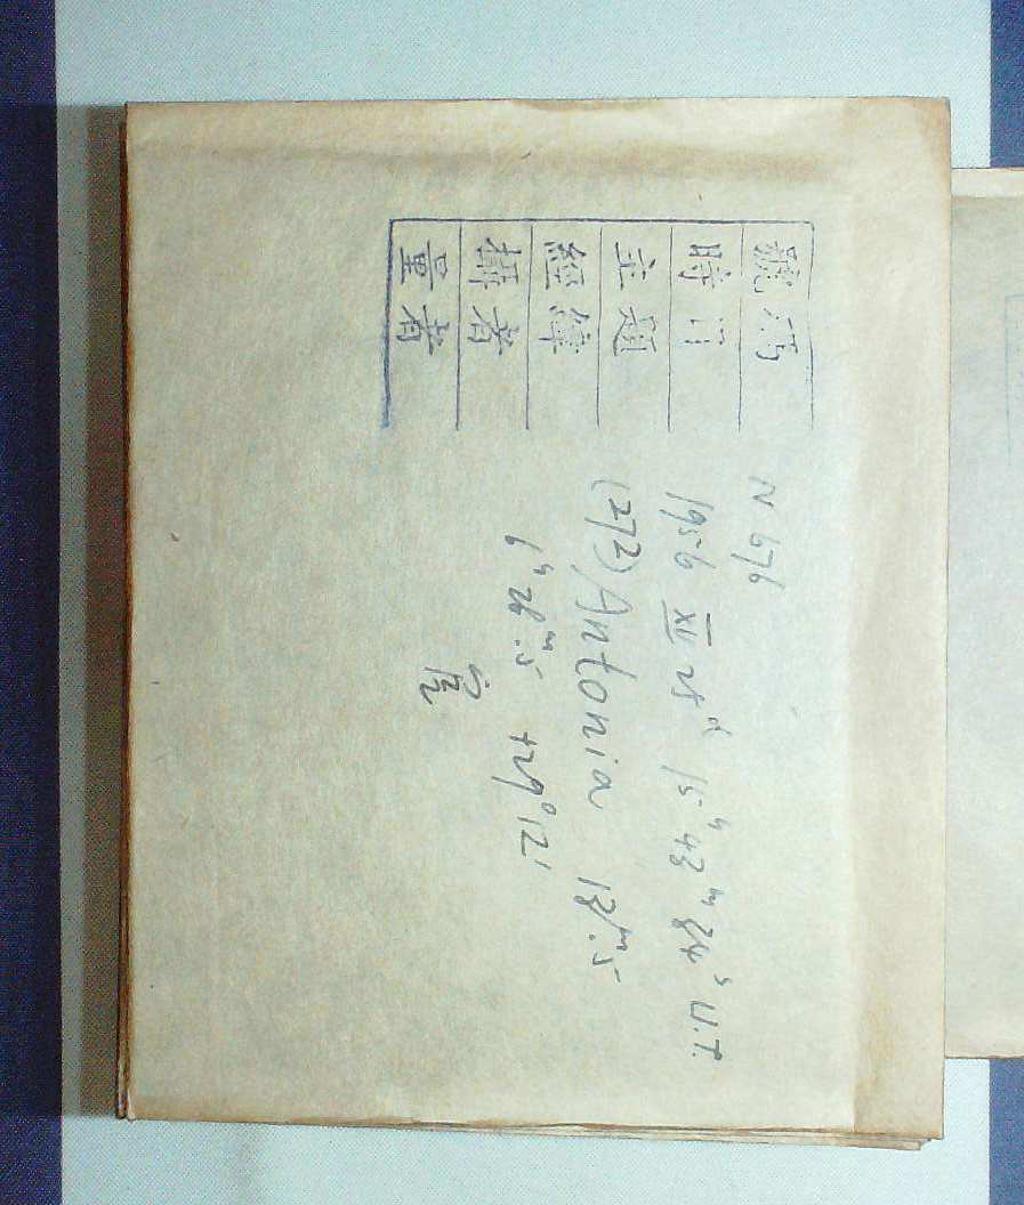 號碼 N 676
時间 1956 XII 25ᵈ 15ʰ 43ᵐ 34ˢ U.T.
主題 (272) Antonia 13ᵐ.5
經緯 6ʰ 28ᵐ.5 +29°12'
攝者
量者